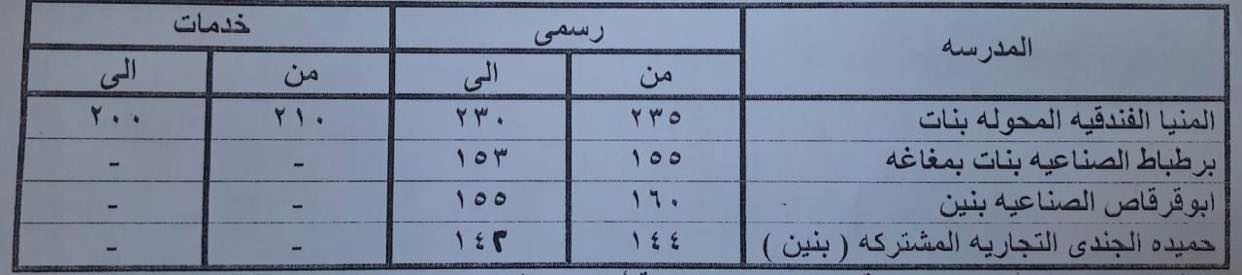 المدرسه رسمى خدمات
من الى من الى
المنيا الفندقيه المحوله بنات ٢٣٥ ٢٣٠ ٢١٠ ٢٠٠
برطباط الصناعيه بنات بمغاغه ١٥٥ ١٥٣ - -
ابوقرقاص الصناعيه بنين ١٦٠ ١٥٥ - -
حميده الجندى التجاريه المشتركه ( بنين ) ١٤٤ ١٤٢ - -